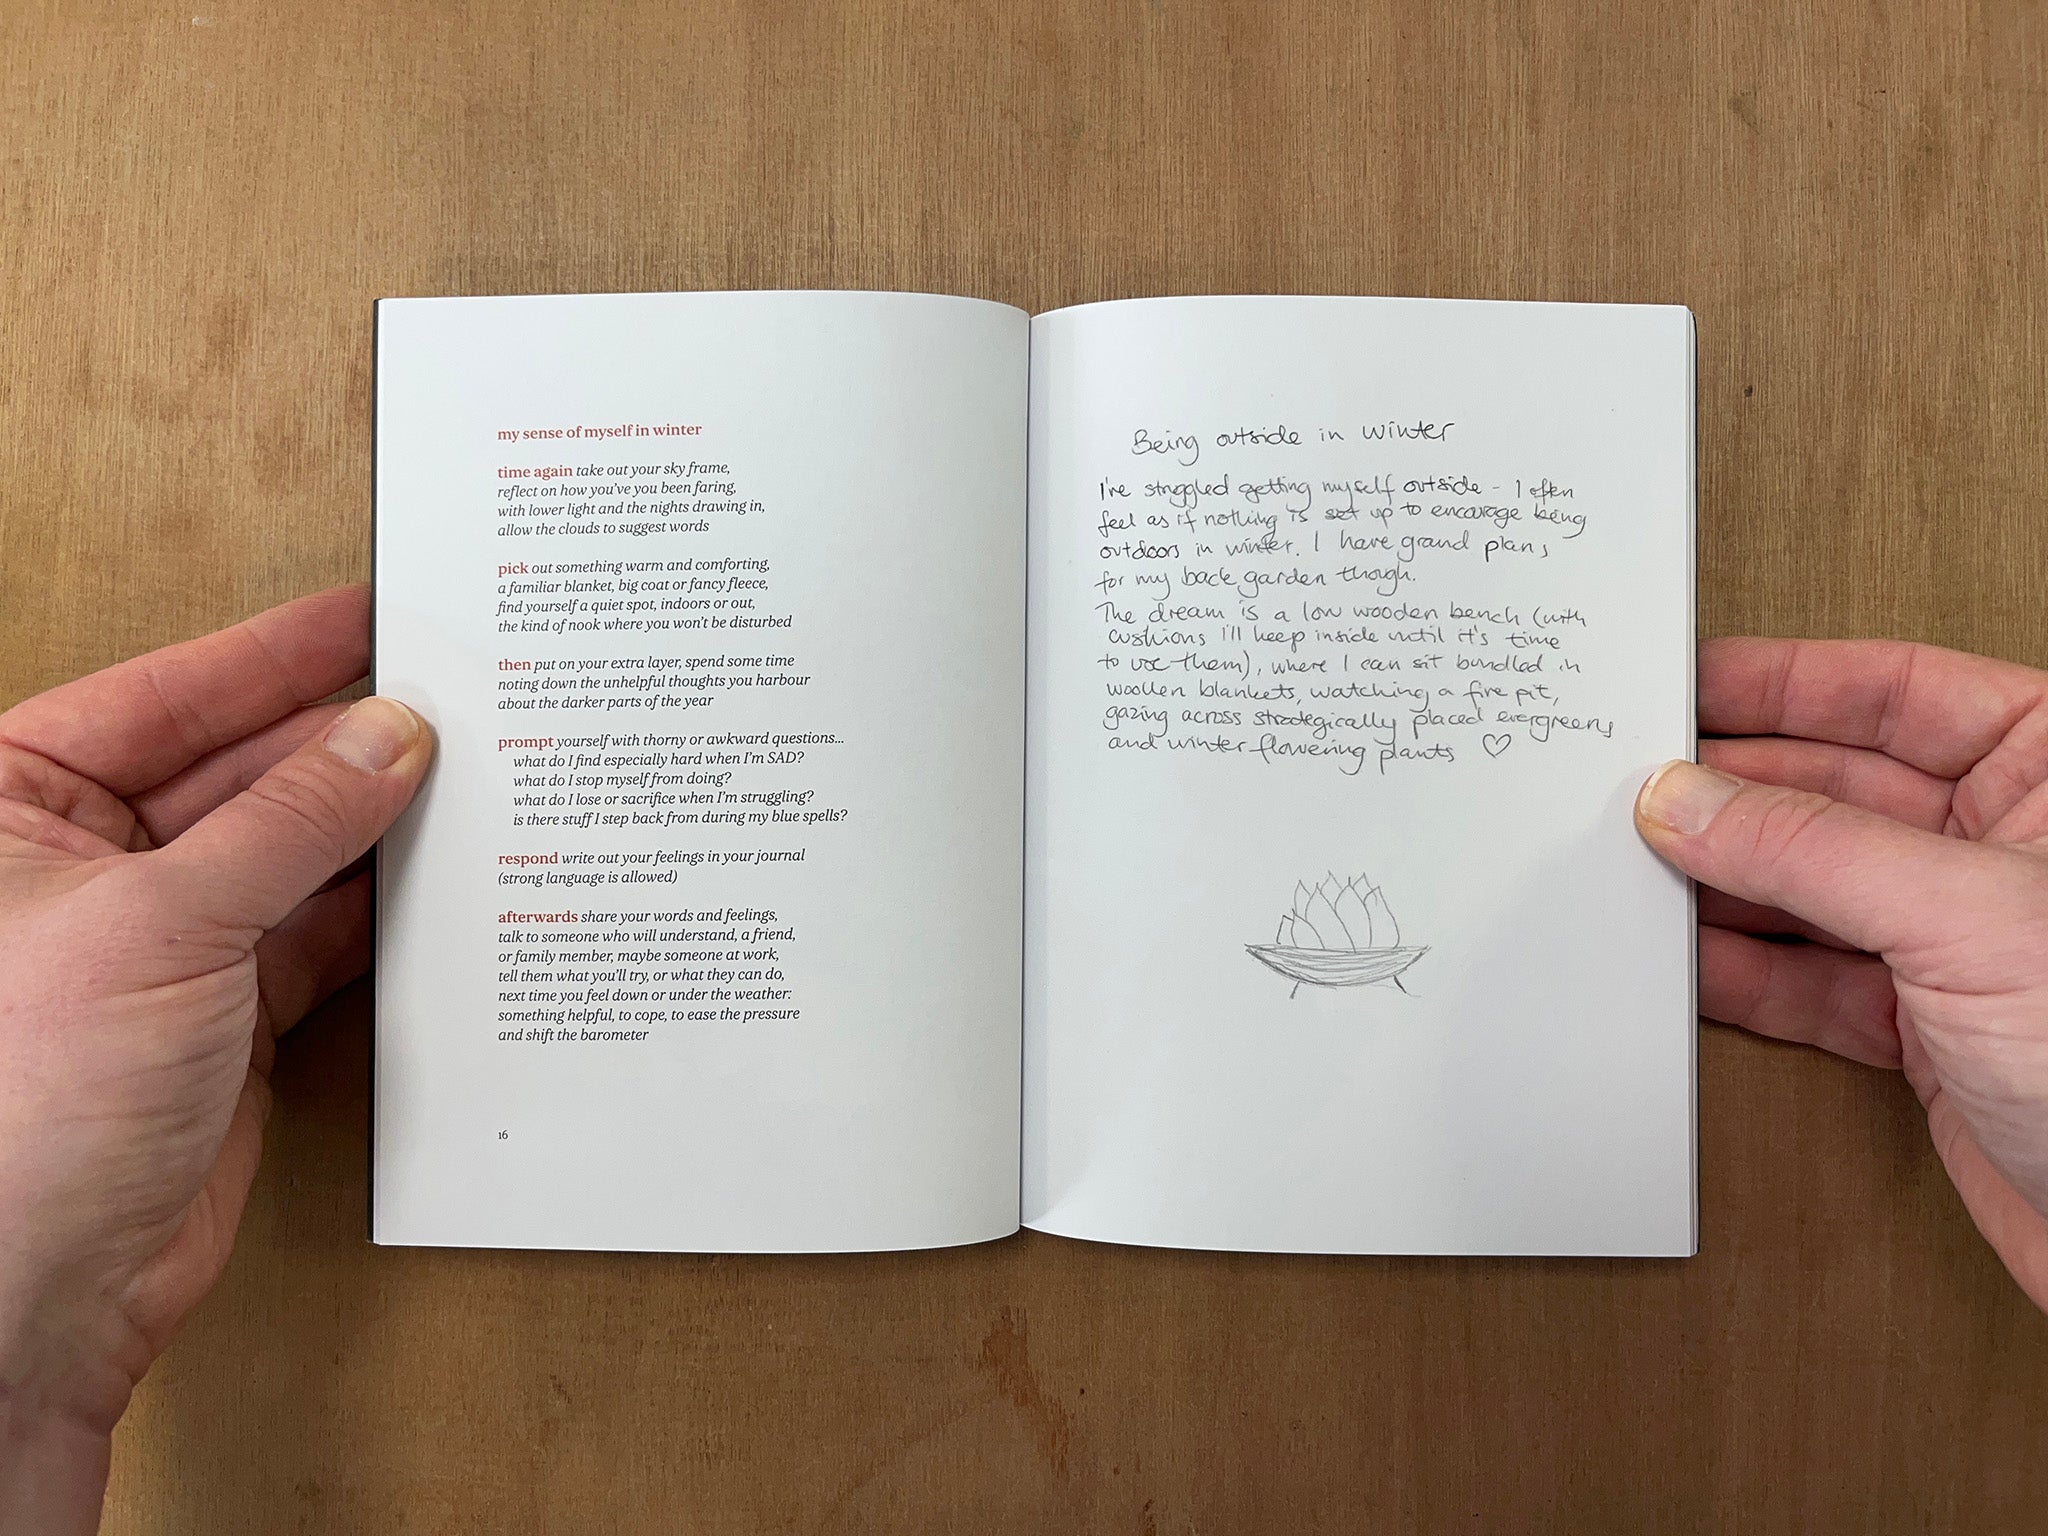 my sense of myself in winter
time again take out your sky frame,
reflect on how you've you been faring,
with lower light and the nights drawing in,
allow the clouds to suggest words
pick out something warm and comforting,
a familiar blanket, big coat or fancy fleece,
find yourself a quiet spot, indoors or out,
the kind of nook where you won't be disturbed
then put on your extra layer, spend some time
noting down the unhelpful thoughts you harbour
about the darker parts of the year
prompt yourself with thorny or awkward questions...
what do I find especially hard when I'm SAD?
what do I stop myself from doing?
what do I lose or sacrifice when I'm struggling?
is there stuff I step back from during my blue spells?
respond write out your feelings in your journal
(strong language is allowed)
afterwards share your words and feelings,
talk to someone who will understand, a friend,
or family member, maybe someone at work,
tell them what you'll try, or what they can do,
next time you feel down or under the weather:
something helpful, to cope, to ease the pressure
and shift the barometer
16
Being outside in winter
I've struggled getting myself outside - I often
feel as if nothing is set up to encourage being
outdoors in winter. I have grand plans
for my back garden though.
The dream is a low wooden bench (with
cushions I'll keep inside until it's time
to use them), where I can sit bundled in
woollen blankets, watching a fire pit,
gazing across strategically placed evergreens
and winter flowering plants ♡